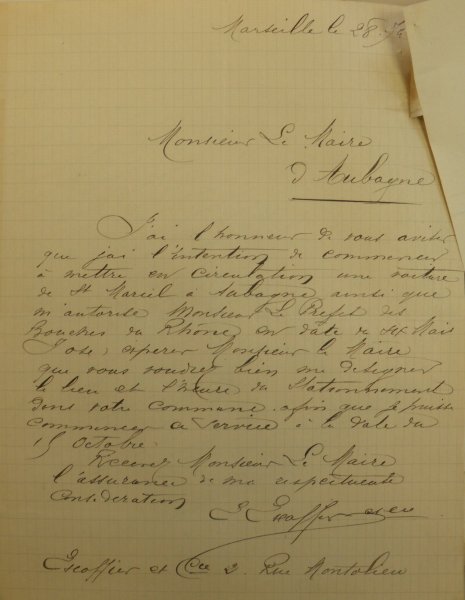 Marseille le 28
Monsieur Le Maire
d'Aubagne
J'ai l'honneur de vous aviser
que j'ai l'intention de commencer
à mettre en circulation une voiture
de St Marcel à Aubagne ainsi que
m'autorise Monsieur Le Prefet des
Bouches du Rhône en date du Mais
J'ose, esperer Monsieur le Maire
que vous voudrez bien me designer
le lieu et l'heure du Stationnement
dans votre commune. afin que je puisse
commencer ce service à la date du
15 Octobre.
Recevez Monsieur Le Maire
l'assurance de ma respectueuse
Consideration
E Escoffier et Cie
Escoffier et Cie 2. Rue Montolieu